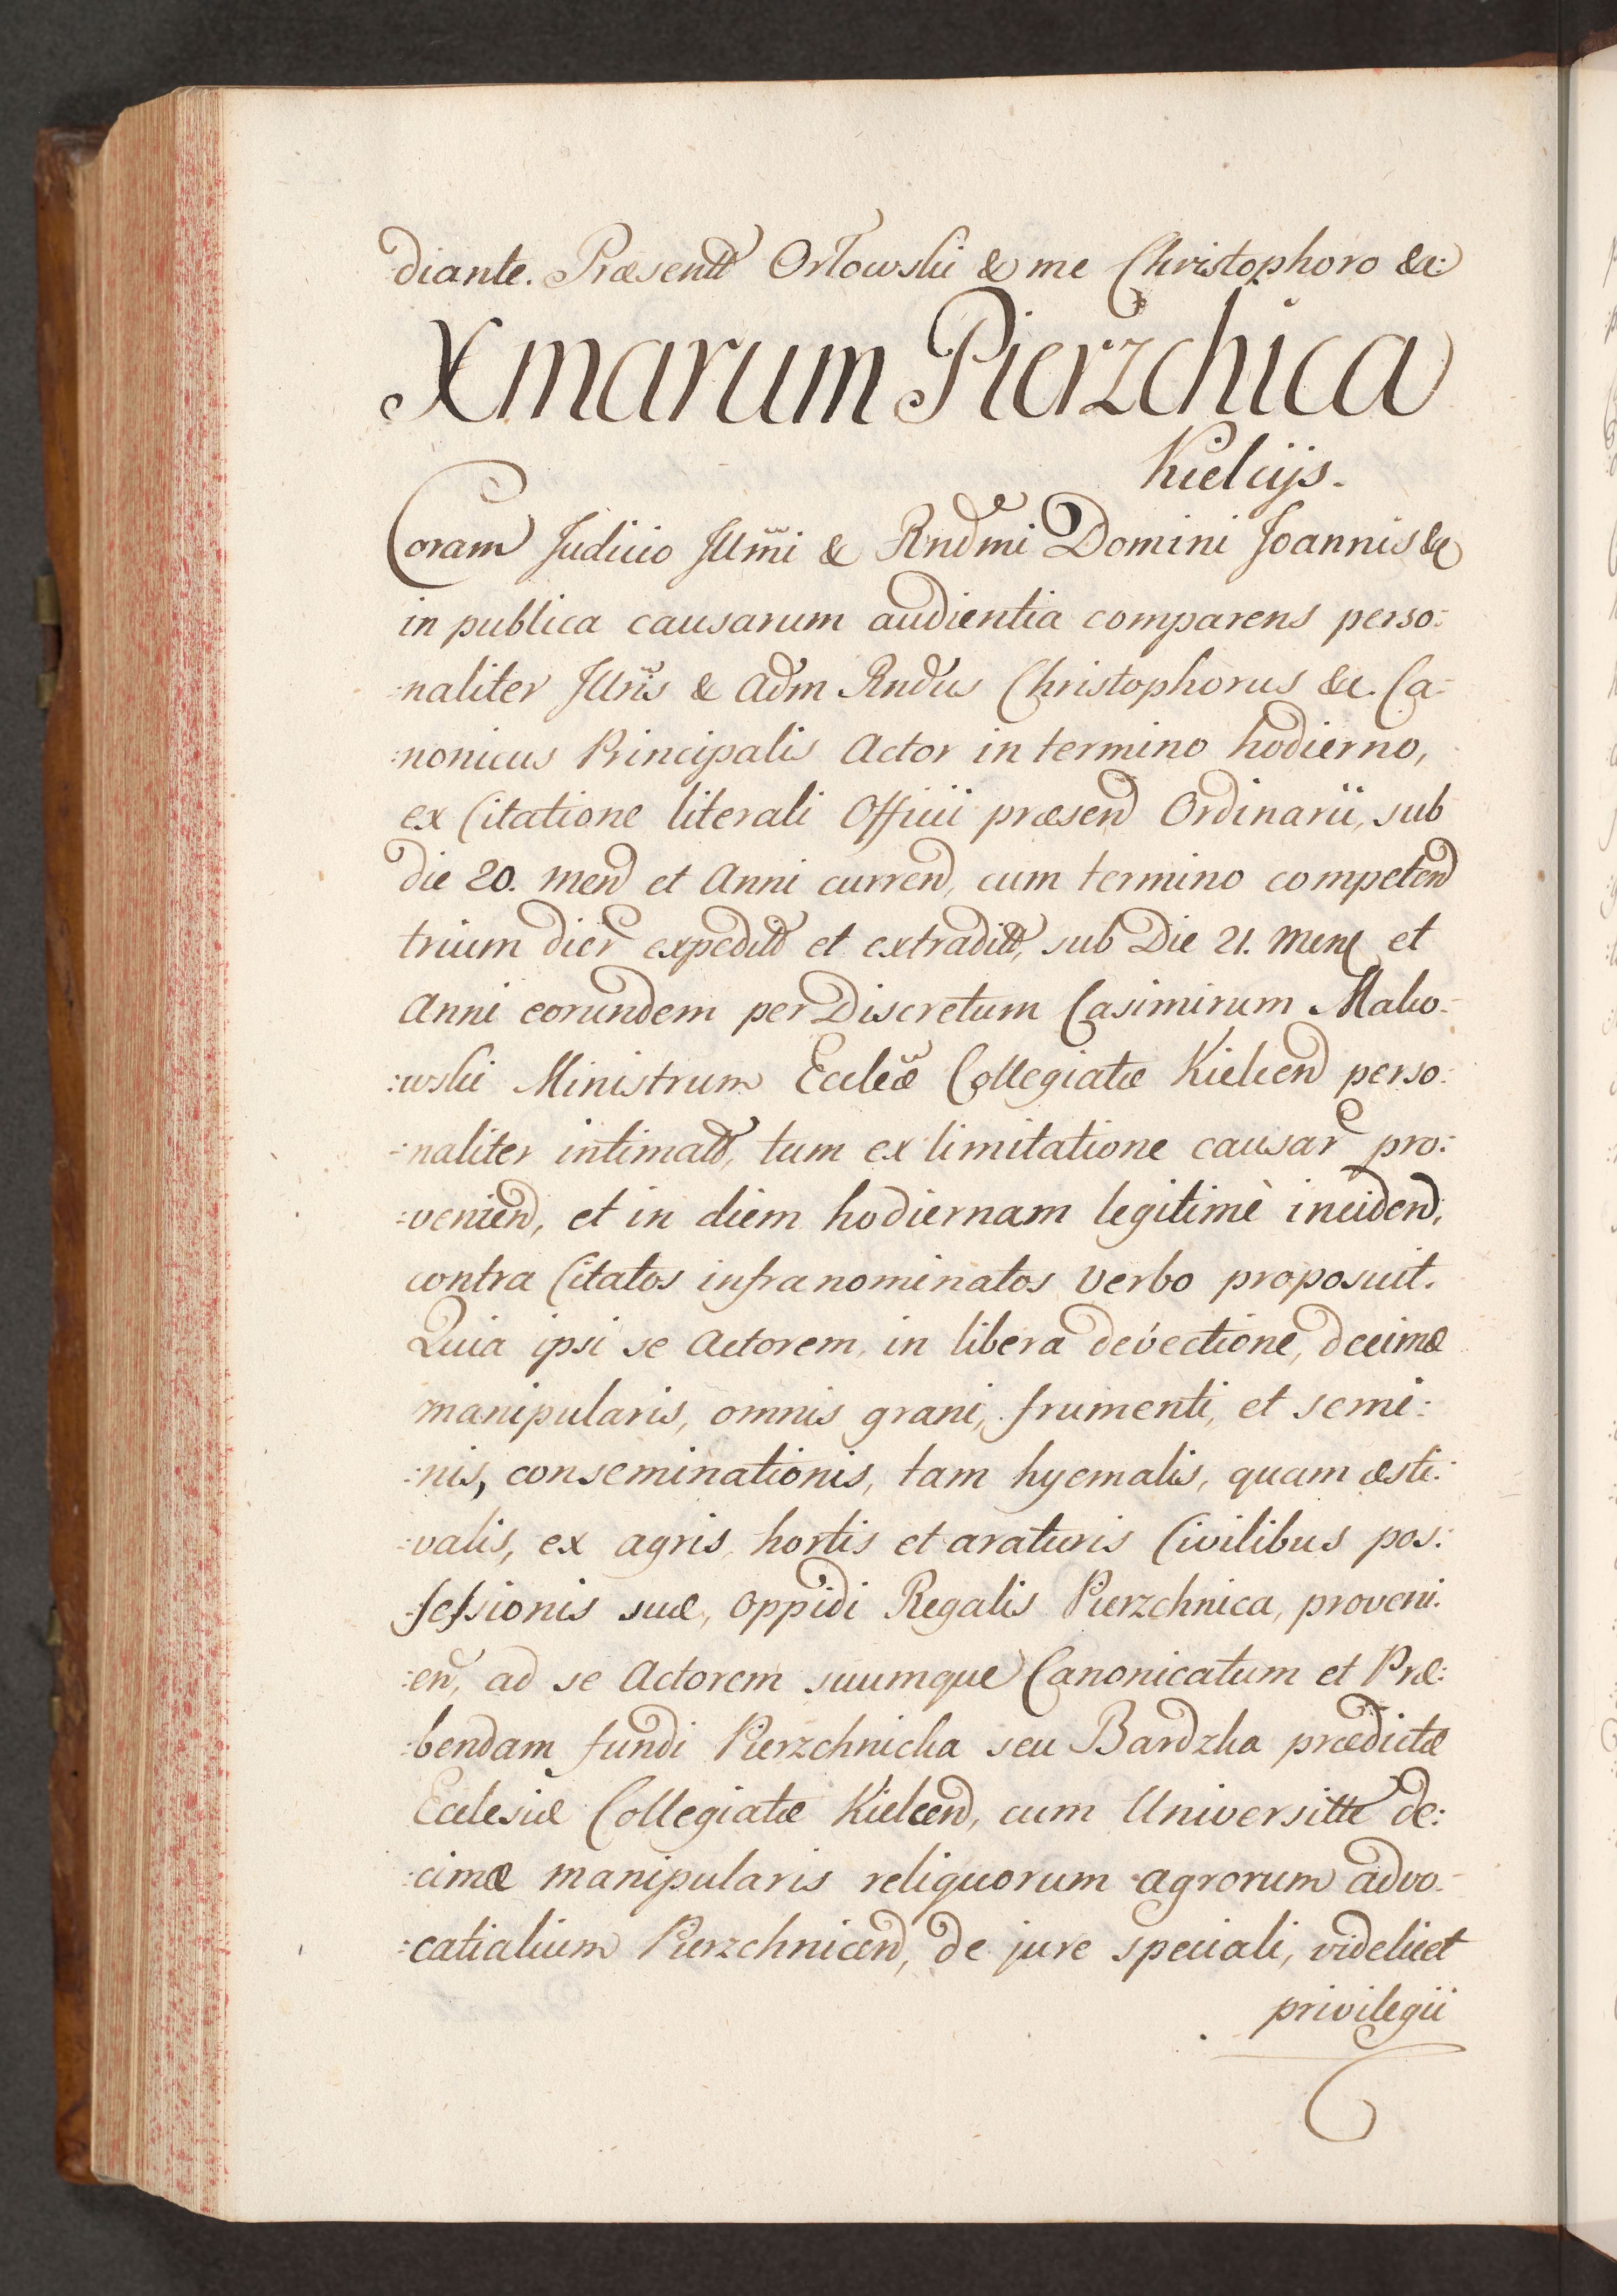 diante. Præsentt Orłowski & me Christophoro &c:
Xmarum Pierzchica
Kielcijs.
Coram Judicio Illmi & Rndmi Domini Joannis &c
in publica causarum audientia comparens perso:
:naliter Illris & Adm Rndus Christophorus &c. Ca:
:nonicus Principalis Actor in termino hodierno,
ex Citatione literali Officii præsend Ordinarii, sub
die 20. mend et Anni currend, cum termino competend
trium dier expeditt et extraditt, sub Die 21. mens et
Anni eorundem per Discretum Casimirum Mako-
:wski Ministrum Eccleæ Collegiatæ Kielcend perso:
:naliter intimatt, tum ex limitatione causar pro:
:veniend, et in diem hodiernam legitimè incidend,
contra Citatos infranominatos verbo proposuit.
Quia ipsi se Actorem, in libera devectione, decimæ
manipularis, omnis grani, frumenti, et semi:
:nis, conseminationis, tam hyemalis, quam æsti:
:valis, ex agris, hortis et araturis Civilibus pos:
:sessionis suæ, oppidi Regalis Pierzchnica, proveni:
:en, ad se Actorem suumque Canonicatum et Præ:
:bendam fundi Pierzchnicka seu Bardzka prædictæ
Ecclesiæ Collegiatæ Kielcend, cum Universitte de:
:cimæ manipularis reliquorum agrorum advo-
:catialium Pierzchnicend, de jure speciali, videlicet
privilegii